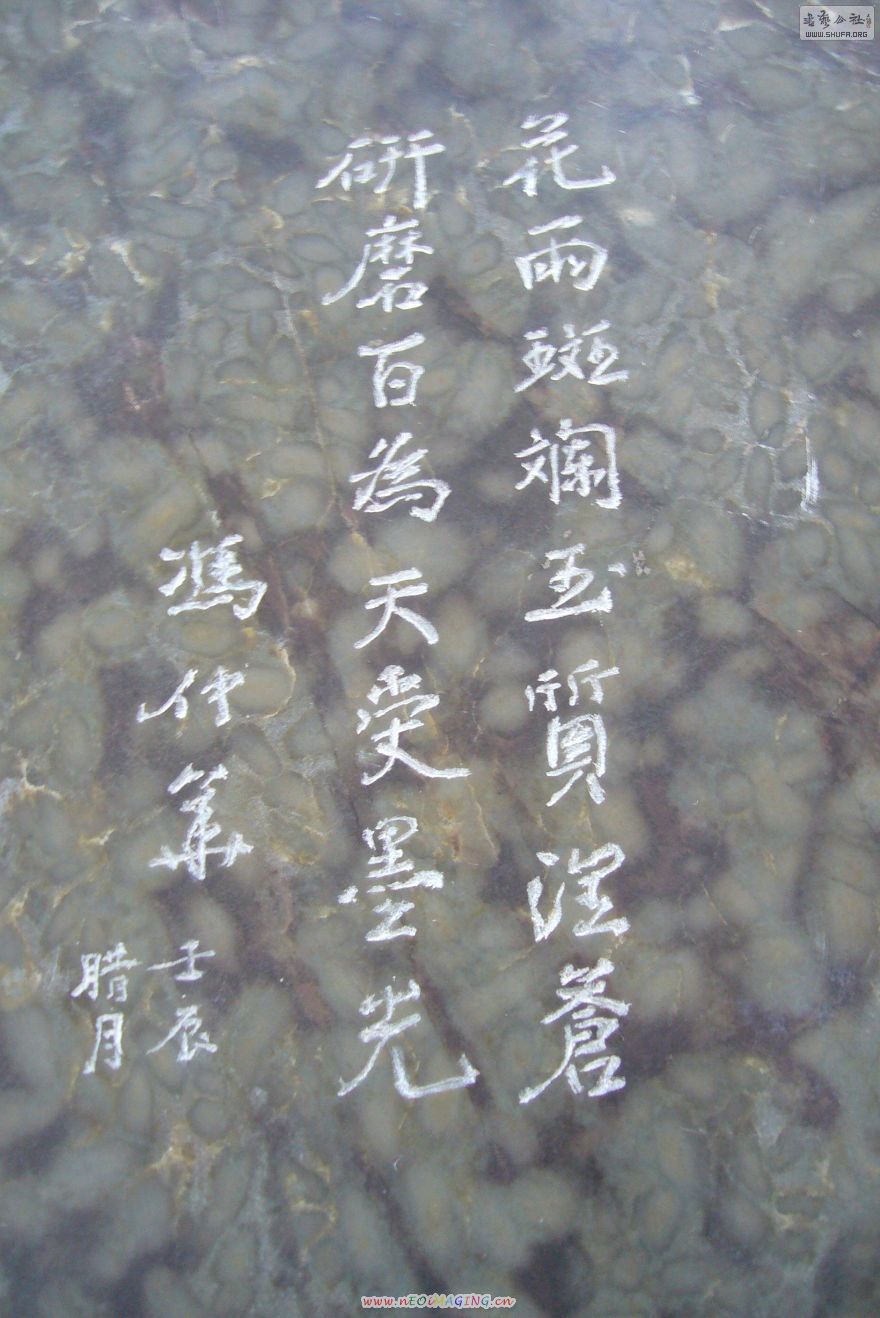 花雨斑斕玉質涅蒼
研磨百為天受墨光
馮仲華
壬辰
腊月
书艺公社
WWW.SHUFA.ORG
www.nEOiMAGING.cn